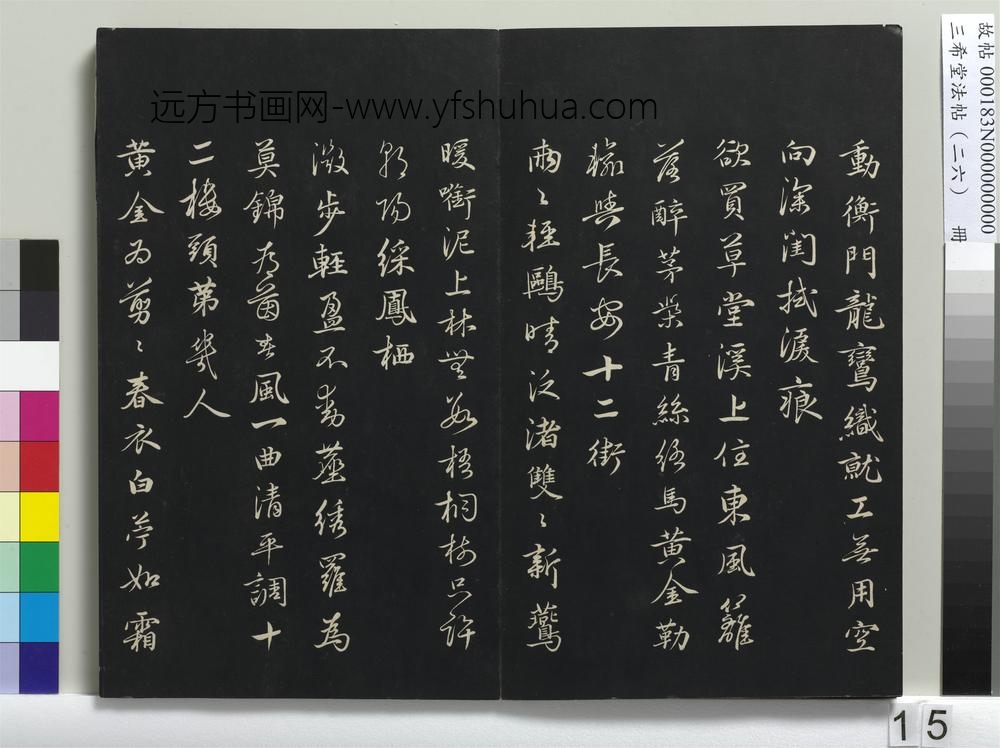 動衡門龍鸞織就工無用空
向深閨拭淚痕
欲買草堂溪上住東風籬
落醉茅柴青絲絡馬黃金勒
輸與長安十二街
兩〻輕鷗晴泛渚雙〻新燕
暖銜泥上林無數梧桐樹只許
朝陽綵鳳栖
微步輕盈不動塵綉羅為
幕錦為茵春風一曲清平調十
二樓頭第幾人
黃金為剪〻春衣白苧如霜
远方书画网-www.yfshuhua.com
故帖 000183N000000000
三希堂法帖（二六） 冊
15